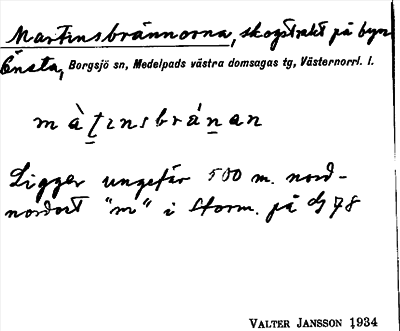 Martinsbrännorna, skogstrakt på byn
Ensta, Borgsjö sn, Medelpads västra domsagas tg, Västernorrl. l.
màt̲ɪnsbrán̲an
Ligger ungefär 500 m. nord-
nordost "m" i Storm. på G 78
VALTER JANSSON 1934